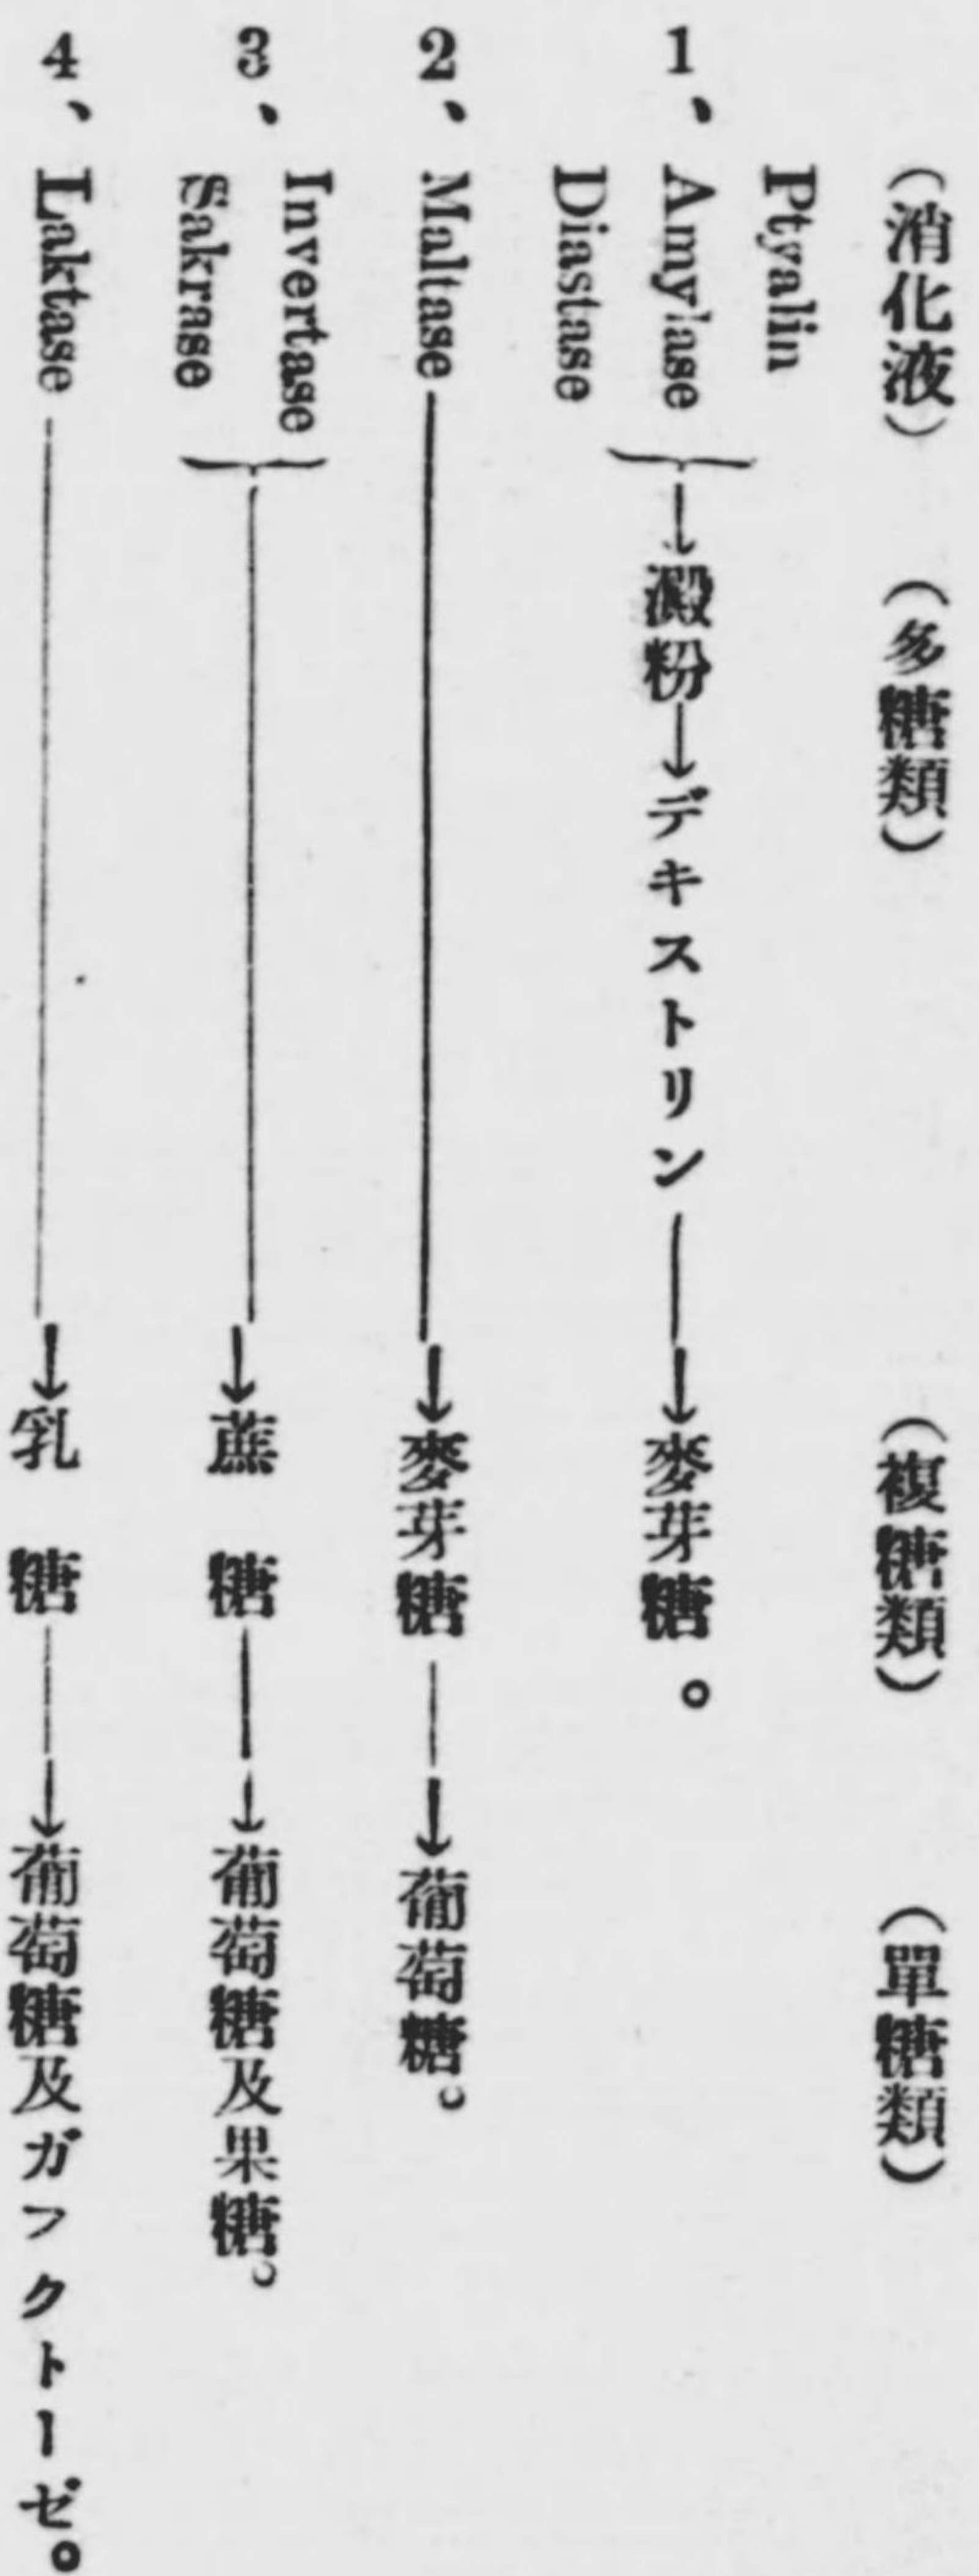 （消化液）　（多糖類）　（複糖類）　（單糖類）
1、
Ptyalin
Amylase
Diastase
→澱粉→デキストリン―→麥芽糖。
2、Maltase―→麥芽糖―→葡萄糖。
3、
Invertase
Sakrase
―→蔗糖―→葡萄糖及果糖。
4、Laktase―→乳糖―→葡萄糖及ガラクトーゼ。